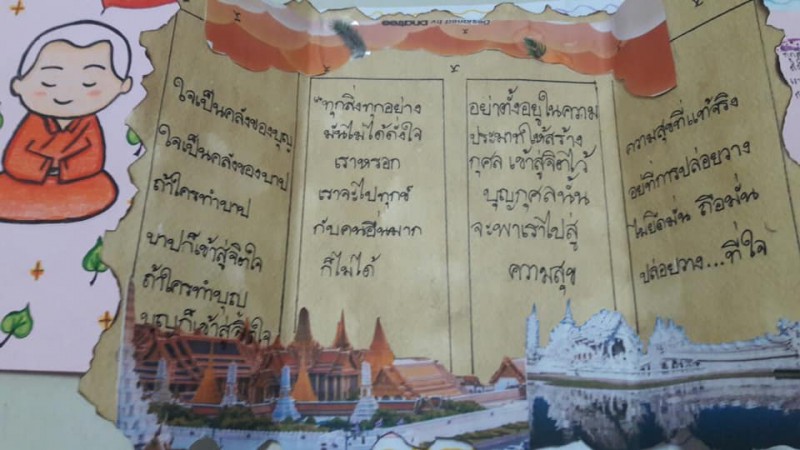 ใจเป็นคลังของบุญ
ใจเป็นคลังของบาป
ถ้าใครทำบาป
บาปก็เข้าสู่จิตใจ
ถ้าใครทำบุญ
บุญก็เข้าสู่จิตใจ
"ทุกสิ่งทุกอย่าง
มันไม่ได้ดั่งใจ
เราหรอก
เราจะไปทุกข์
กับคนอื่นมาก
ก็ไม่ได้
อย่าตั้งอยู่ในความ
ประมาทให้สร้าง
กุศล เข้าสู่จิตไว้
บุญกุศลนั้น
จะพาเราไปสู่
ความสุข
ความสุขที่แท้จริง
อยู่ที่การปล่อยวาง
ไม่ยึดมั่น ถือมั่น
ปล่อยวาง...ที่ใจ